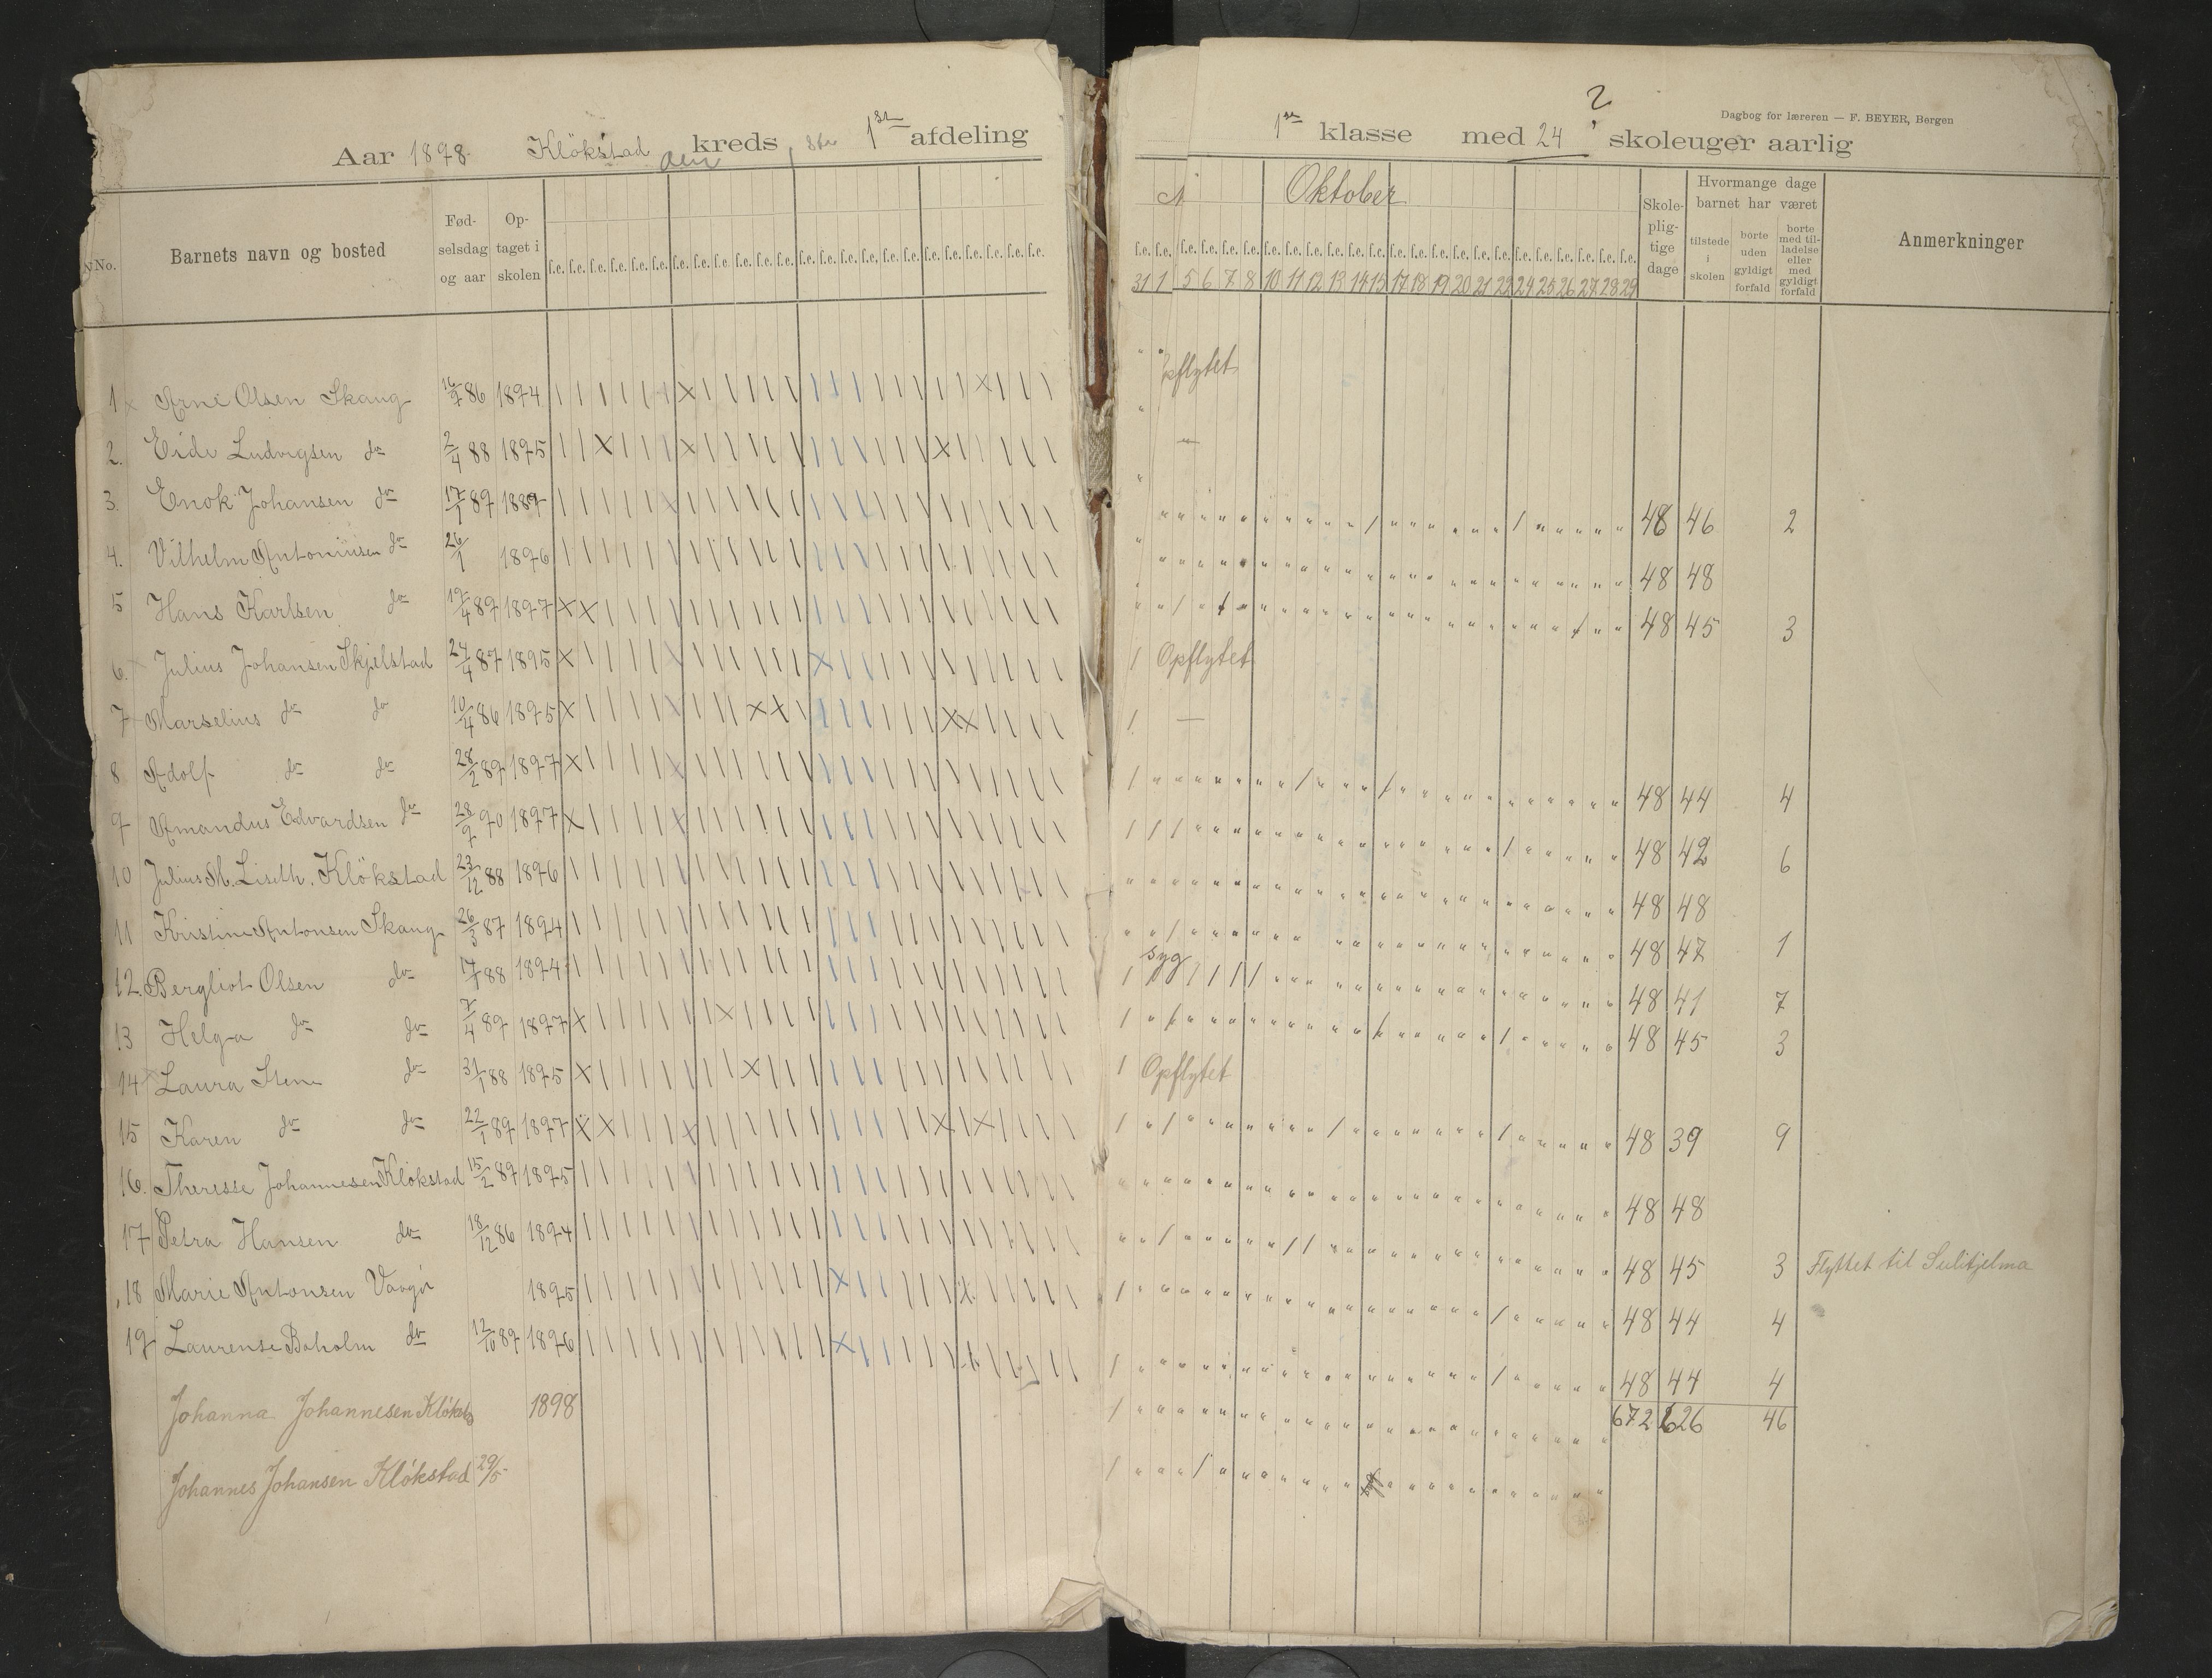 Aar 1898. Klökstad kreds, 1ste afdeling
1ste klasse med 24 skoleuger aarlig
2
Dagbog for læreren — F. BEYER, Bergen
No. Barnets navn og bosted Fødselsdag og aar Optaget i skolen
Oktober
Skolepligtige dage
Hvormange dage barnet har været
tilstede i skolen
borte uden gyldigt forfald
borte med tilladelse eller med gyldigt forfald
Anmerkninger
f.e. f.e. f.e. f.e. f.e. f.e. f.e. f.e. f.e. f.e. f.e. f.e. f.e. f.e. f.e. f.e. f.e. f.e. f.e. f.e. f.e. f.e. f.e. f.e.
31 1 5 6 7 8 10 11 12 13 14 15 17 18 19 20 21 22 24 25 26 27 28 29
1 Arne Olsen Skaug 86 1894 Opflytet
2. Eide Ludvigsen do 2/4 88 1895 —
3. Enok Johansen do 17/1 89 48 46 2
4. Vilhelm Antoniusen do 26/1 1896 48 48
5 Hans Karlsen do 19/4 89 1897 48 45 3
6. Julius Johansen Skjelstad 24/4 87 1895 Opflytet
7 Marselius do do 10/4 86 1895 —
8 Adolf do do 28/2 89 1897 48 44 4
9 Amandus Edvardsen do 28/9 90 1897 48 42 6
10 Julius M. Liseth. Klökstad 23/12 88 1896 48 48
11 Kristine Antonsen Skaug 26/3 87 1894 48 47 1
12. Bergliot Olsen do 88 1894 syg 48 41 7
13 Helga do do 7/4 89 1897 48 45 3
14 Laura Sten do 31/1 88 1895 Opflytet
15 Karen do do 22/1 89 1897 48 39 9
16. Theresse Johannesen Klökstad 15/2 89 1895 48 48
17 Petra Hansen do 18/12 86 1894 48 45 3 Flyttet til Sulitjelma
18 Marie Antonsen 1895 48 44 4
19 Laurense Boholm do 12/10 89 1896 48 44 4
Johanna Johannesen 1898 672 626 46
Johannes Johansen Klökstad 29/5